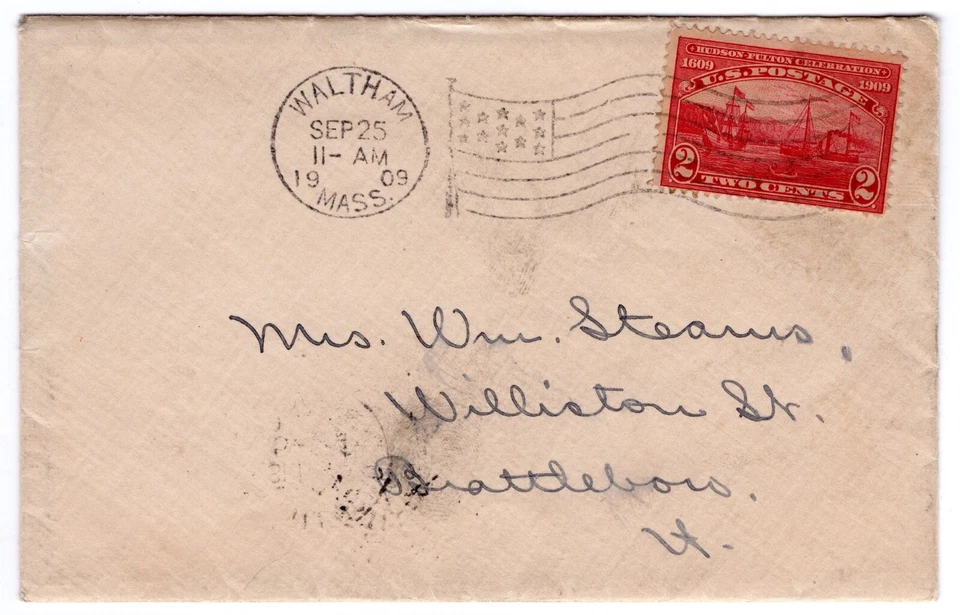 WALTHAM
SEP 25
11- AM
19 09
MASS.
HUDSON-FULTON CELEBRATION
1609 1909
U.S. POSTAGE
2 TWO CENTS 2
Mrs. Wm. Stearns,
Williston St.
Brattleboro.
Vt.